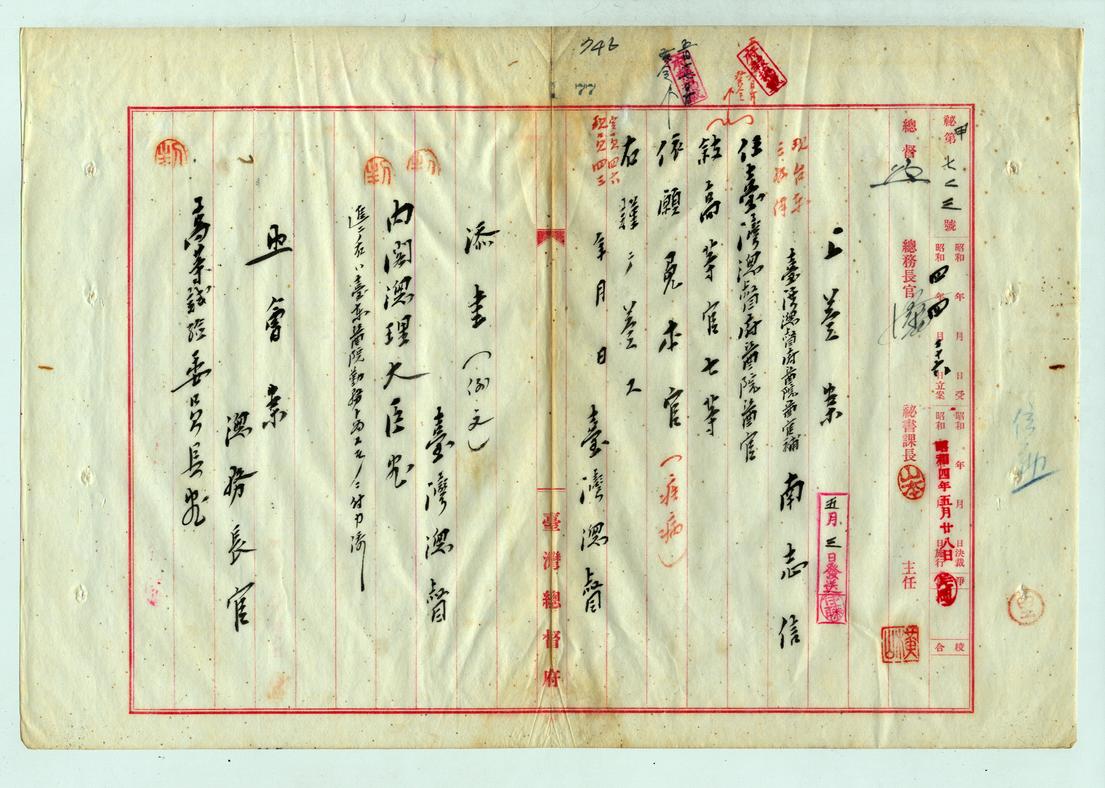 秘第甲七二三號
昭和 年 月 日受
昭和四年四月二十六日立案
昭和 年 月 日決裁
昭和四年五月廿八日
日施行
淨
校合
總督
總務長官
秘書課長
主任
上奏案
五月三日發送
臺灣總督府醫院醫官補 南志信
任臺灣總督府醫院醫官
敍高等官七等
依願免本官（疾病）
右謹テ奏ス
年月日 臺灣總督
臺灣總督府
添書（例文）
臺灣總督
內閣總理大臣宛
追テ右ハ臺東醫院勤務
照會案
總務長官
高等試驗委員長宛
746